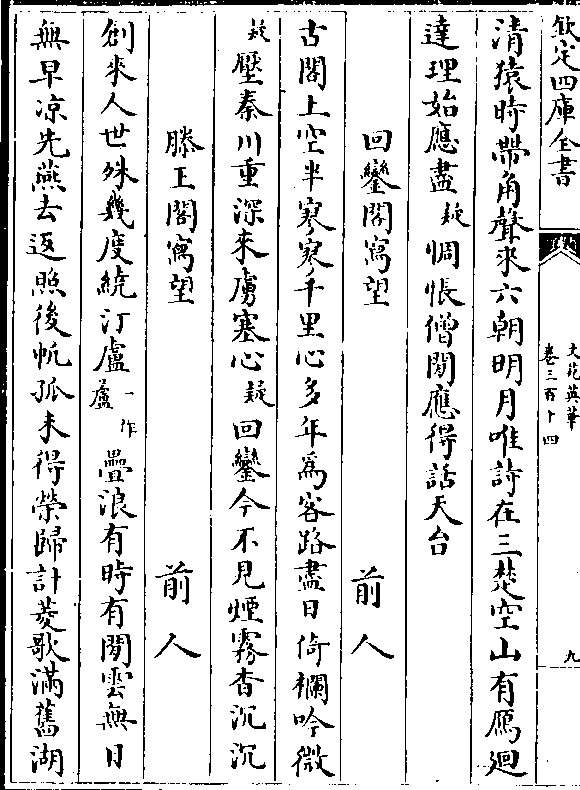 欽定四庫全書
文苑英華
卷三百十四
九
清猿時帶角聲來六朝明月唯詩在三楚空山有鴈廻
達理始應盡疑惆悵僧閒應得話天台
回鑾閣寫望
前人
古閣上空半寥寥千里心多年為客路盡日倚欄吟微
疑壓秦川重深來虜塞心疑回鑾今不見煙霧杳沉沉
滕王閣寫望
前人
創來人世殊幾度繞汀盧一作蘆疊浪有時有閒雲無日
無早凉先燕去返照後帆孤未得榮歸計菱歌滿舊湖